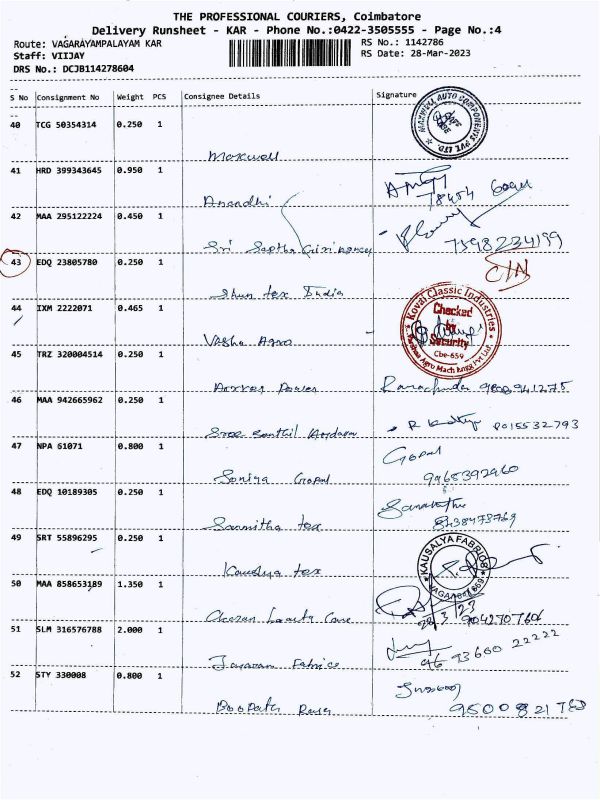 THE PROFESSIONAL COURIERS, Coimbatore
Delivery Runsheet - KAR - Phone No.:0422-3505555 - Page No.:4
Route: VAGARAYAMPALAYAM KAR
RS No.: 1142786
Staff: VIIJAY
RS Date: 28-Mar-2023
DRS No.: DCJB114278604
S No Consignment No Weight PCS Consignee Details Signature
40 TCG 50354314 0.250 1
Maxwell
MAXWELL AUTO COMPONENTS PVT. LTD.
41 HRD 399343645 0.950 1
Anandhi
42 MAA 295122224 0.450 1
Sri
7598234199
43 EDQ 23805780 0.250 1
C/N
Shun tex India
44 IXM 2222071 0.465 1
Varsha Agro
Kovai Classic Industries
Checked
by
Security
Cbe-659
45 TRZ 320004514 0.250 1
Power
46 MAA 942665962 0.250 1
Sree Senthil
8015532793
47 NPA 61071 0.800 1
Soniya Gopal
Gopal
9965392960
48 EDQ 10189305 0.250 1
Sanmitha tex
49 SRT 55896295 0.250 1
Kausalya tex
KAUSALYA FABRICS
50 MAA 858653189 1.350 1
Care
28.3.23
51 SLM 316576788 2.000 1
Jayaram Fabrics
96 73600 22222
52 STY 330008 0.800 1
Boopathi